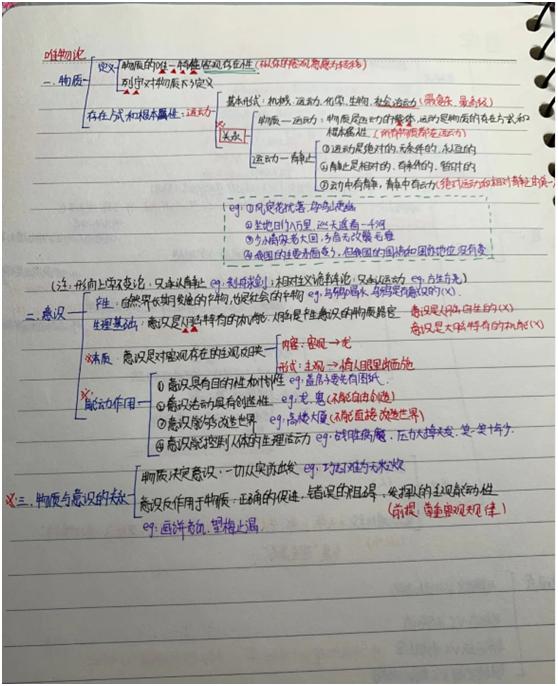 唯物论
一、物质 定义 物质的唯一特性客观存在性(
列宁对物质下的定义
存在方式和根本属性:运动 基本形式:机械、运动、化学、生物、社会活动(最复杂、最高级)
※关系 物质—运动:物质是运动的载体,运动是物质的存在方式和
根本属性(所有物质都在运动)
运动—静止 ①运动是绝对的、无条件的、永恒的
②静止是相对的、有条件的、暂时的
③动中有静,静中有动(绝对运动和相对静止的统一)
eg:①风定花犹落,鸟鸣山更幽
②坐地日行八万里,巡天遥看一千河
③少小离家老大回,乡音无改鬓毛衰
④我国的主要矛盾变了,但我国的国情和国际地位没有变
(注:形而上学不变论:只承认静止 eg:刻舟求剑;相对主义诡辩论:只承认运动 eg:方生方死)
二、意识 产生:自然界长期发展的产物,也是社会的产物 eg:乌鸦喝水,乌鸦是有意识的(×)
生理基础:意识是人脑特有的机能,人脑是产生意识的物质器官 意识是人脑自生的(×)
意识是大脑特有的机能(×)
※本质:意识是对客观存在的主观反映 内容:客观→龙
形式:主观→情人眼里出西施
※能动作用 ①意识具有目的性和计划性 eg:盖房子要先有图纸
②意识活动具有创造性 eg:龙、鬼(不能自由创造)
③意识能够改造世界 eg:高楼大厦(不能直接改造世界)
④意识能控制人体的生理活动 eg:战胜病魔、压力大掉头发、笑一笑十年少
※三、物质与意识的关系 物质决定意识:一切从实际出发 eg:巧妇难为无米之炊
意识反作用于物质:正确的促进,错误的阻碍,发挥人的主观能动性
(前提:尊重客观规律)
eg:画饼充饥,望梅止渴